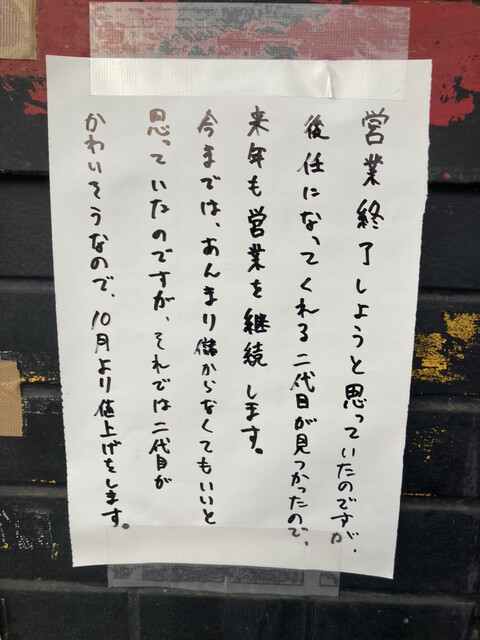 営業終了しようと思っていたのですが、
後任になってくれる二代目が見つかったので、
来年も営業を継続します。
今までは、あんまり儲からなくてもいいと
思っていたのですが、それでは二代目が
かわいそうなので、10月より値上げをします。